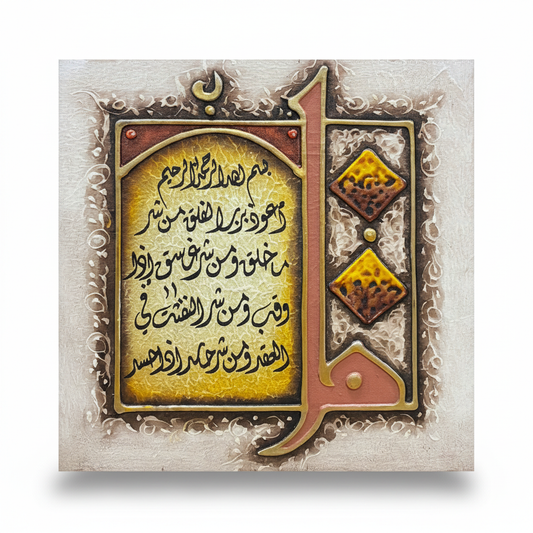 بسم الله الرحمن الرحيم
اعوذ برب الفلق من شر
ما خلق ومن شر غسق إذا
وقب ومن شر النفثت في
العقد ومن شر حاسد اذا حسد